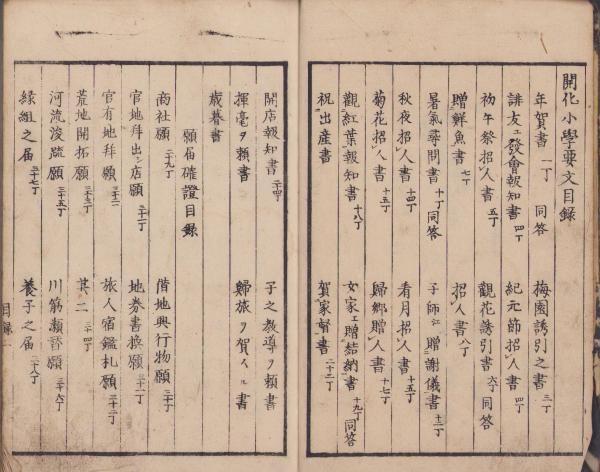 開化小學要文目録
年賀書 一丁 同答 梅園誘引之書 三丁
誹友エ發會報知書 四丁 紀元節招人書 四丁
初午祭招人書 五丁 觀花誘引書 六丁 同答
贈鮮魚書 七丁 招人書 八丁
暑氣尋問書 十丁 同答 子師エ贈謝儀書 十二丁
秋夜招人書 十四丁 看月招人書 十五丁
菊花招人書 十五丁 歸郷贈人書 十七丁
觀紅葉報知書 十八丁 女家エ贈結納書 十九丁 同答
祝出産書 賀家督書 二十二丁
開店報知書 二十四丁 子之教導ヲ頼書
揮毫ヲ頼書 歸旅ヲ賀スル書
歳暮書
願届確證目録
商社願 二十九丁 借地興行物願 三十丁
官地拜出シ店願 三十一丁 地券書換願 三十一丁
官有地拜願 三十二 旅人宿鑑札願 三十三丁
荒地開拓願 三十三丁 其二 三十四丁
河流浚疏願 三十五丁 川筋瀬替願 三十六丁
縁組之届 三十七丁 養子之届 三十八丁
目録一